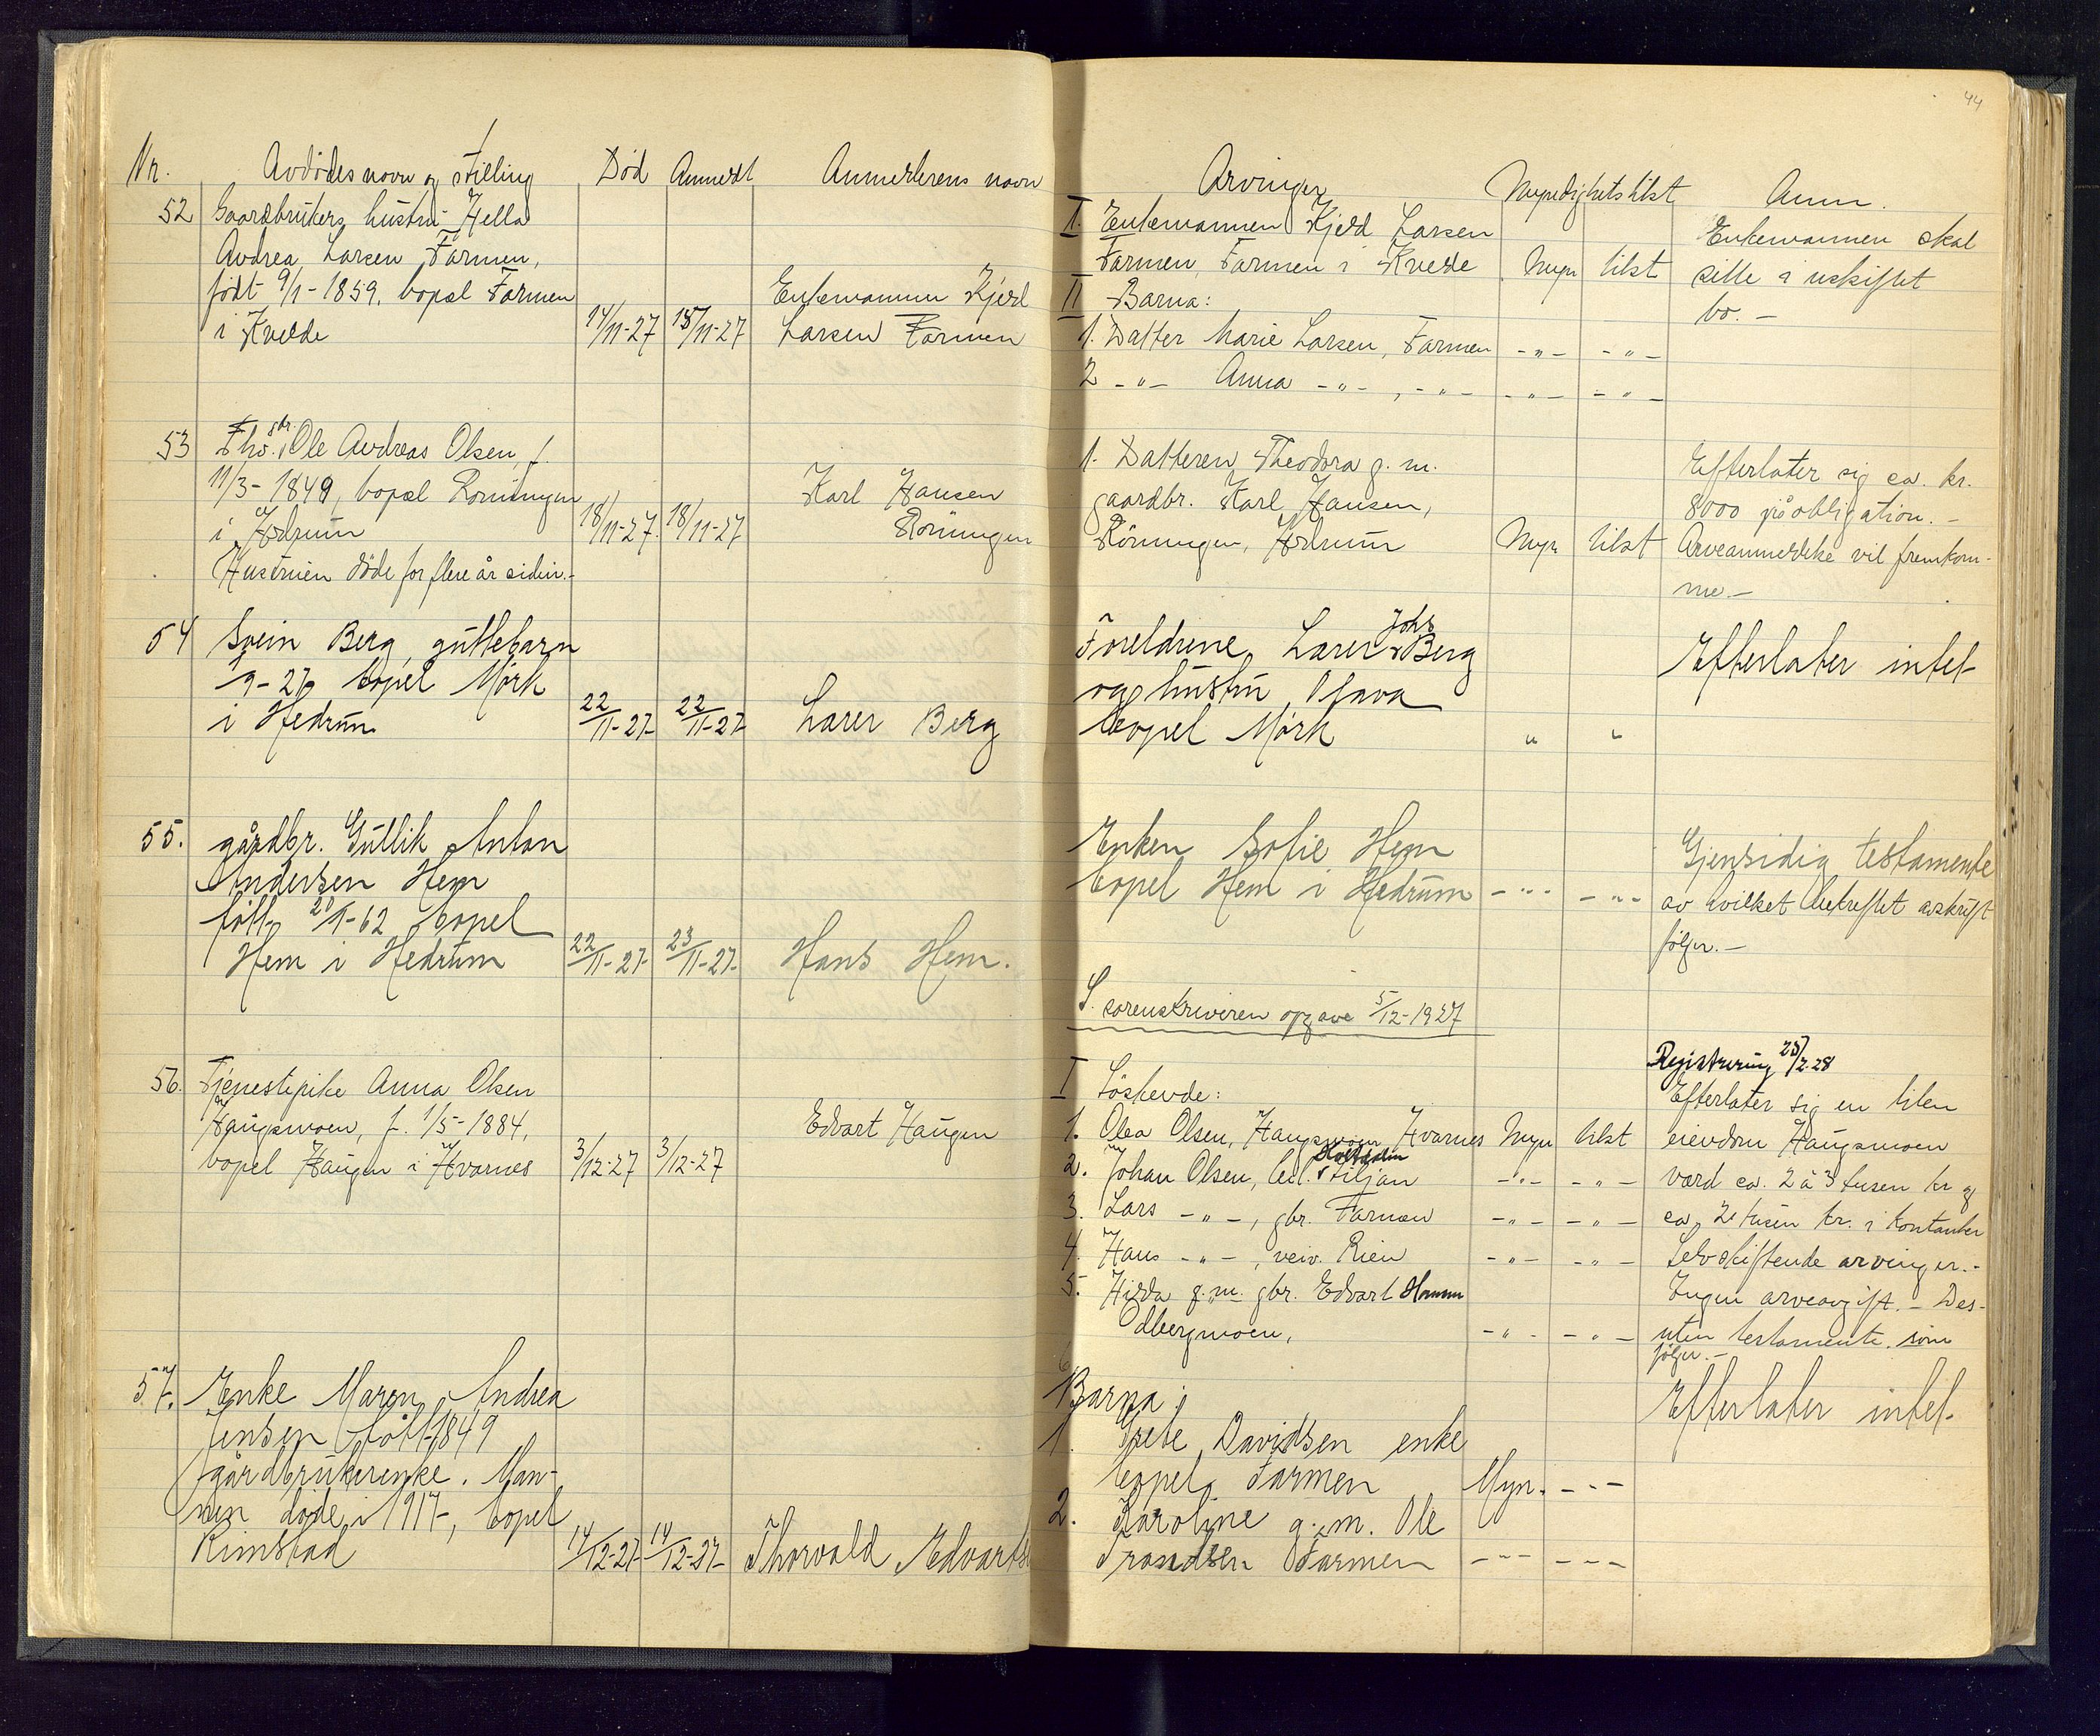 44
Nr. Avdødes navn og stilling Død Anmeldt Anmelderens navn
52 Gaardbrukers hustru Hella
Andrea Larsen Farmen,
født 9/1-1859, bopæl Farmen
i Kvelde 14/11-27 15/11-27
Enkemannen Kjeld
Larsen Farmen
53 Fhv. gdr. Ole Andreas Olsen, f.
11/3-1849, bopæl Röningen
i Hedrum 18/11-27. 18/11-27
Hustruen döde for flere år siden.-
Karl Hansen
Röningen
54 Svein Berg, guttebarn
9-27, bopel Mörk
i Hedrum 22/11-27- 22/11-27- Larer Berg
55. gårdbr. Gullik Anton
Andersen Hem
født 1-62 bopel
Hem i Hedrum 22/11-27- 23/11-27- Hans Hem.
56. Tjenestepike Anna Olsen
Haugsmoen, f. 1/5-1884,
bopel Haugen i Hvarnes 3/12-27 3/12-27
Edvart Haugen
57. Enke Maren Andrea
Jensen født 1849
gårdbrukerenke. Man-
nen døde i 1917-, bopel
Rimstad 14/12-27- 14/12-27- Thorvald Edvards
Arvinger Myndighetstilst Anm.
I. Enkemannen Kjeld Larsen
Farmen, Farmen i Kvelde Myn tilst
II Barna:
1. Datter Marie Larsen, Farmen -"- -"-
2 -"- Anna -"-, -"- -"- -"-
Enkemannen skal
sitte i uskiftet
bo. -
1. Datteren Theodora g. m.
gaardbr. Karl Hansen,
Röningen, Hedrum Myn tilst
Efterlater sig ca. kr.
8000 på obligation. -
Arveanmeldelse vil fremkom-
me.-
Foreldrene, Larer Johs Berg
og hustru Olava
bopel Mörk " "
Efterlater intet-
Enken Sofie Hem
bopel Hem i Hedrum -"- -"-
Gjensidig testamente
av hvilket bekreftet avskrift
følger.-
S. sorenskriveren opgave 5/12-1927
I Söskende:
1. Olea Olsen, Haugsmoen Hvarnes Myn tilst
2. Johan Olsen, -"- -"-
3. Lars -"-, gbr. Farmen -"- -"-
4. Hans -"-, veiv. Rien -"- -"-
5. Hilda g. m. gbr. Edvart
-"- -"-
Registrering 25/2-28
Efterlater sig en liten
eiendom Haugsmoen
værd ca. 2 à 3 tusen kr og
ca. 2 tusen kr. i kontanter
Selvskiftende arvinger.-
Ingen arveavgift. - Des-
uten testamente som
følger.-
Barna:
1. Grete Davidsen enke
bopel Farmen Myn. -"-
2. Karoline g. m. Ole
Trandsen Farmen -"- -"-
Efterlater intet-